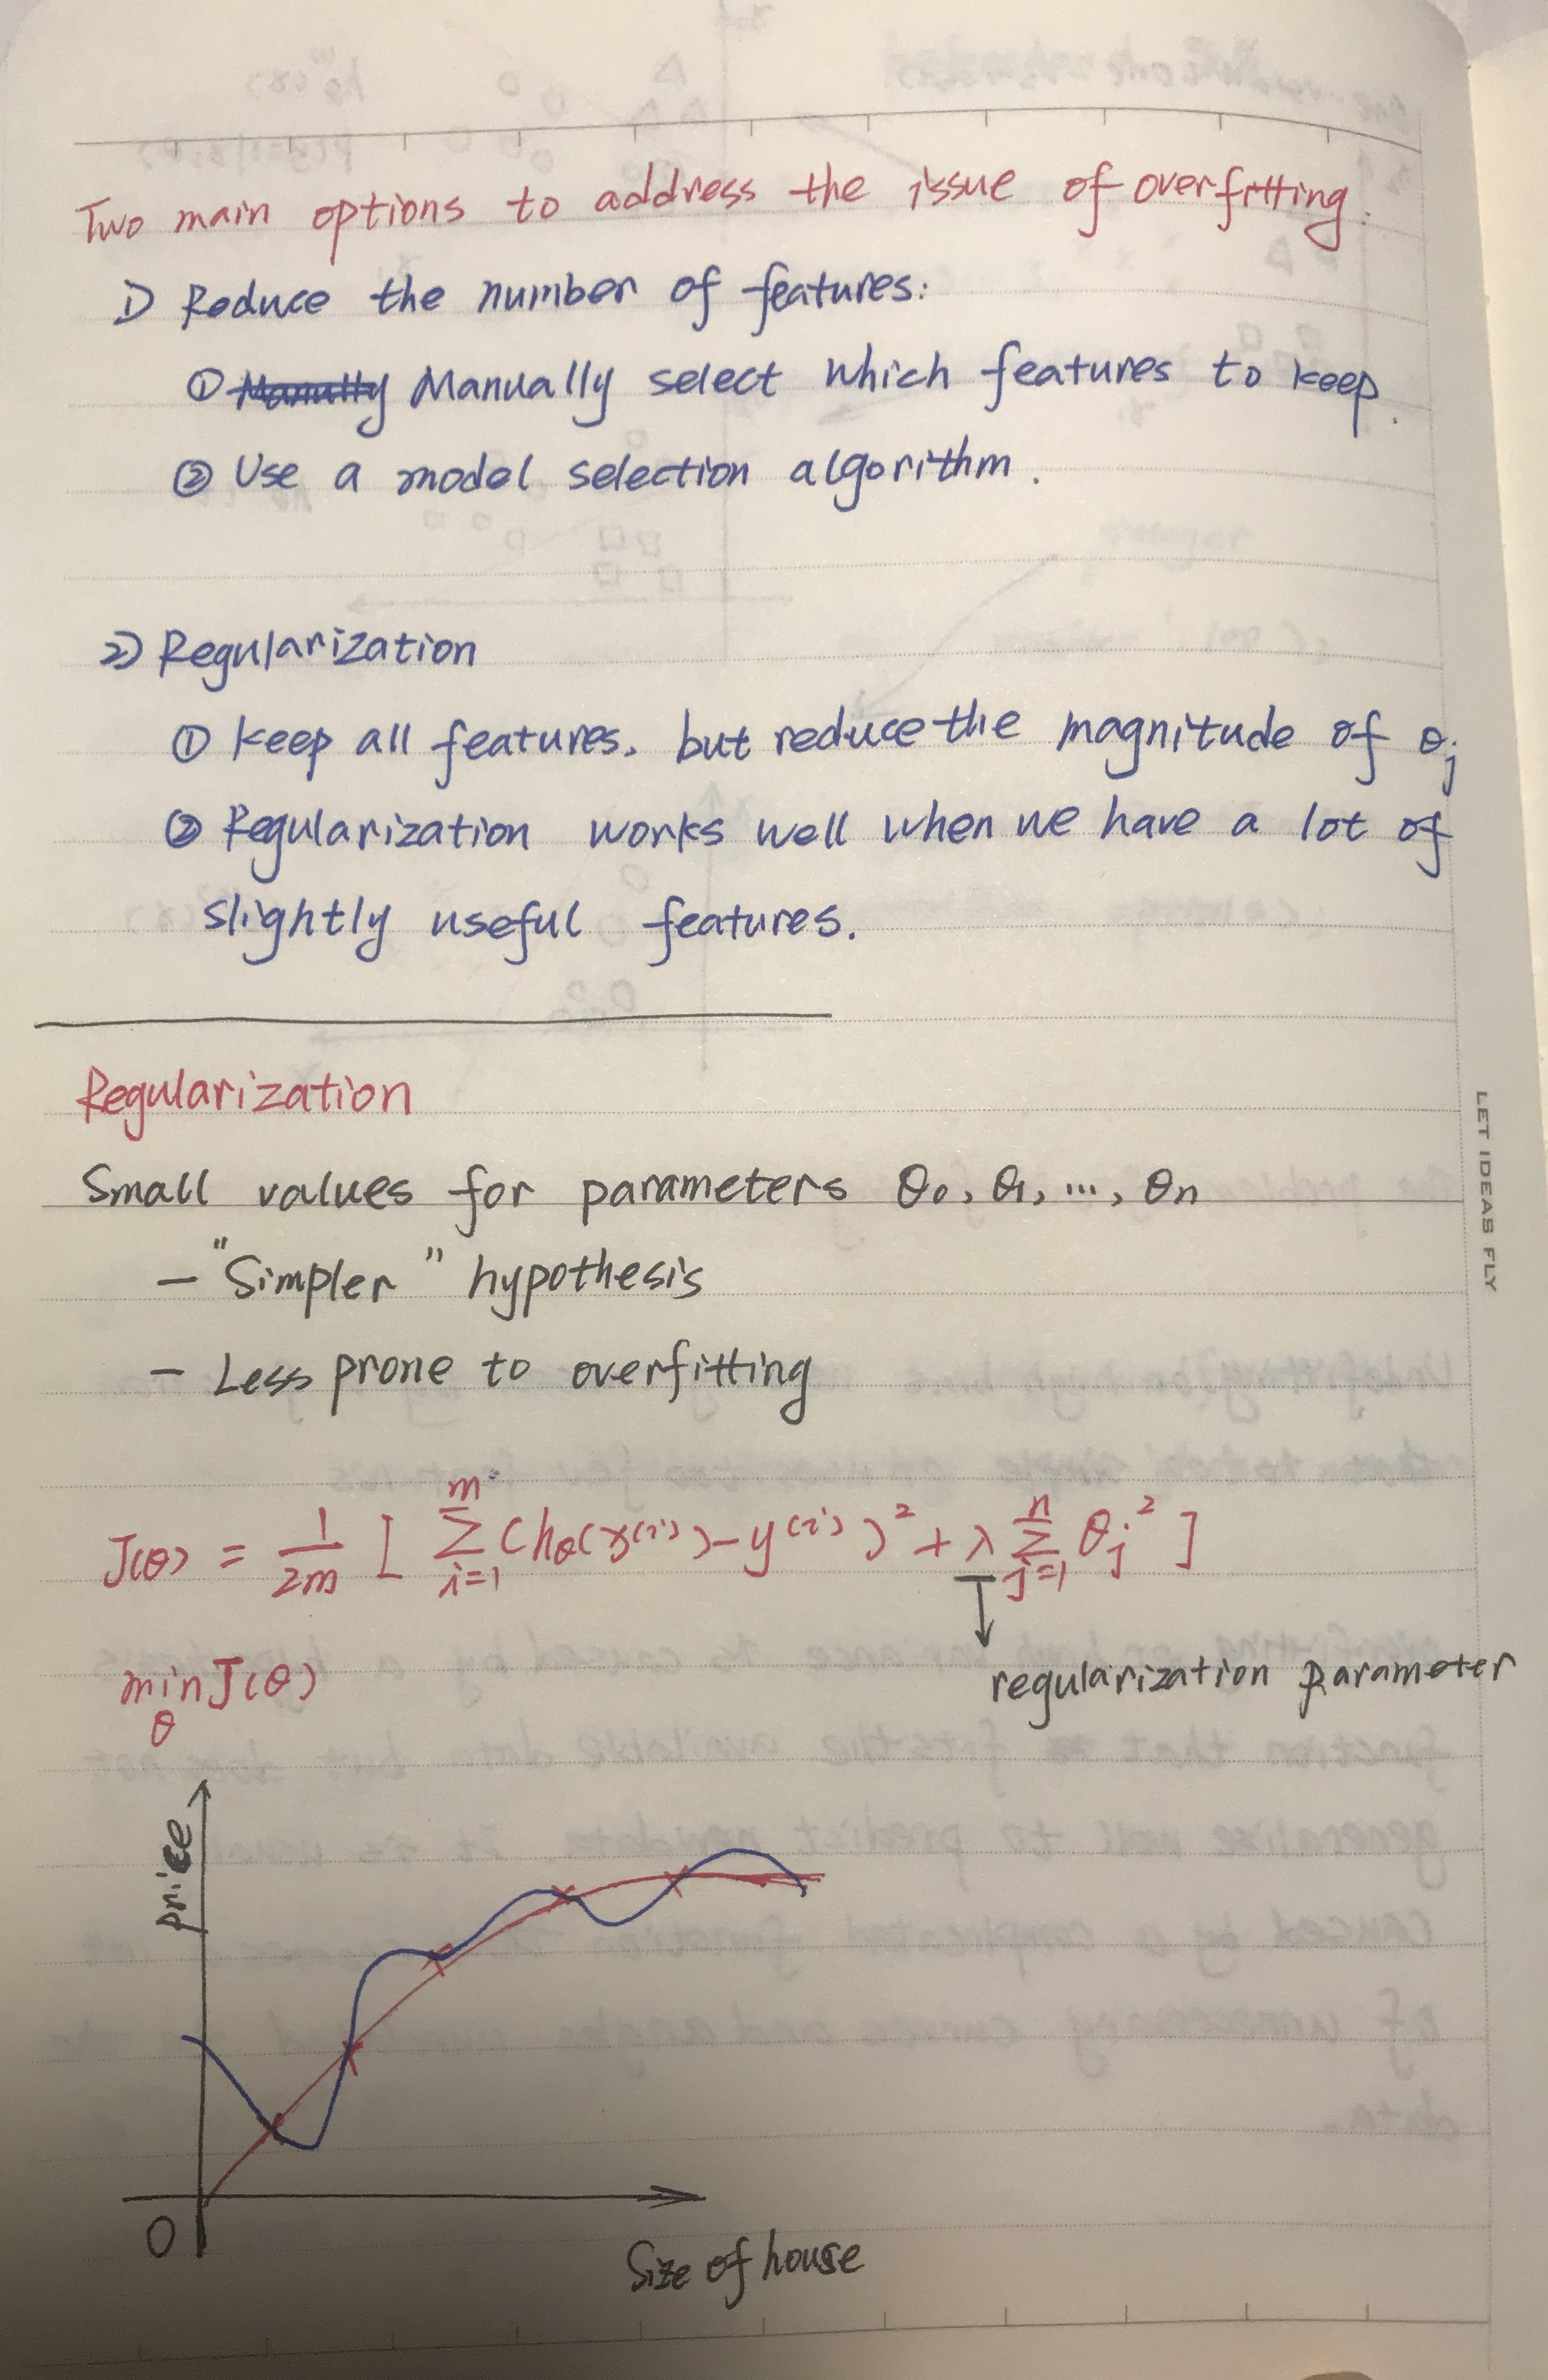 Two main options to address the issue of overfitting.
1) Reduce the number of features:
① Manually Manually select which features to keep.
② Use a model selection algorithm.
2) Regularization
① keep all features, but reduce the magnitude of θj
② Regularization works well when we have a lot of
slightly useful features.
Regularization
Small values for parameters θ0, θ1, ..., θn
- "Simpler" hypothesis
- Less prone to overfitting
J(θ) = 1/2m [ Σ_{i=1}^{m} (hθ(x^(i)) - y^(i))² + λ Σ_{j=1}^{n} θj² ]
regularization parameter
min_θ J(θ)
price
0
Size of house
LET IDEAS FLY